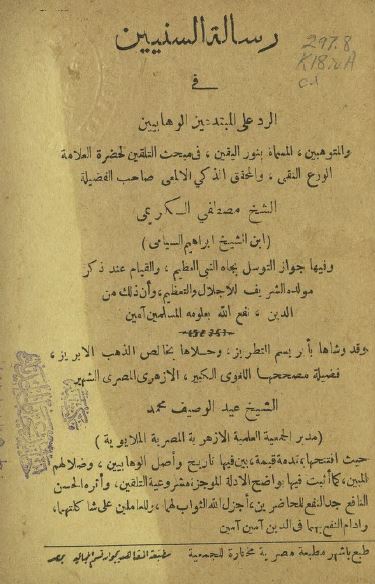 رسالة السنيين
297.8
K18.rA
c.1
في
الرد على المبتدعين الوهابيين
والمتوهبين ، المسماة بنور اليقين ، في مبحث التلقين لحضرة العلامة
الورع النقى ، والمحقق الذكى الالمعى صاحب الفضيلة
الشيخ مصطفي الكريمى
(ابن الشيخ ابراهيم السيامى)
وفيها جواز التوسل بجاه النبى العظيم ، والقيام عند ذكر
مولده الشريف للاجلال والتعظيم ، وأن ذلك من
الدين ، نفع الله بعلومه المسلمين آمين
وقد وشاها بأبريسم التطريز ، وحلاها بخالص الذهب الابريز ،
فضيلة مصححها اللغوى الكبير ، الازهرى المصرى الشهير
الشيخ عبد الوصيف محمد
(مدير الجمعية العلمية الازهرية المصرية الملايوية)
حيث افتتحها بمقدمة قيمة ، بين فيها تاريخ وأصل الوهابيين ، وضلالهم
المبين ، كما أثبت فيها بواضح الادلة الموجز ، مشروعية التلقين ، وأثره الحسن
النافع جد النفع للحاضرين ، أجزل الله الثواب لهما ، وللعاملين على شاكلتهما ،
وادام النفع بهما فى الدين آمين آمين
طبع باشهر مطبعة مصرية مختارة للجمعية مطبعة المعاهد بجوار قسم الجمالية بمصر